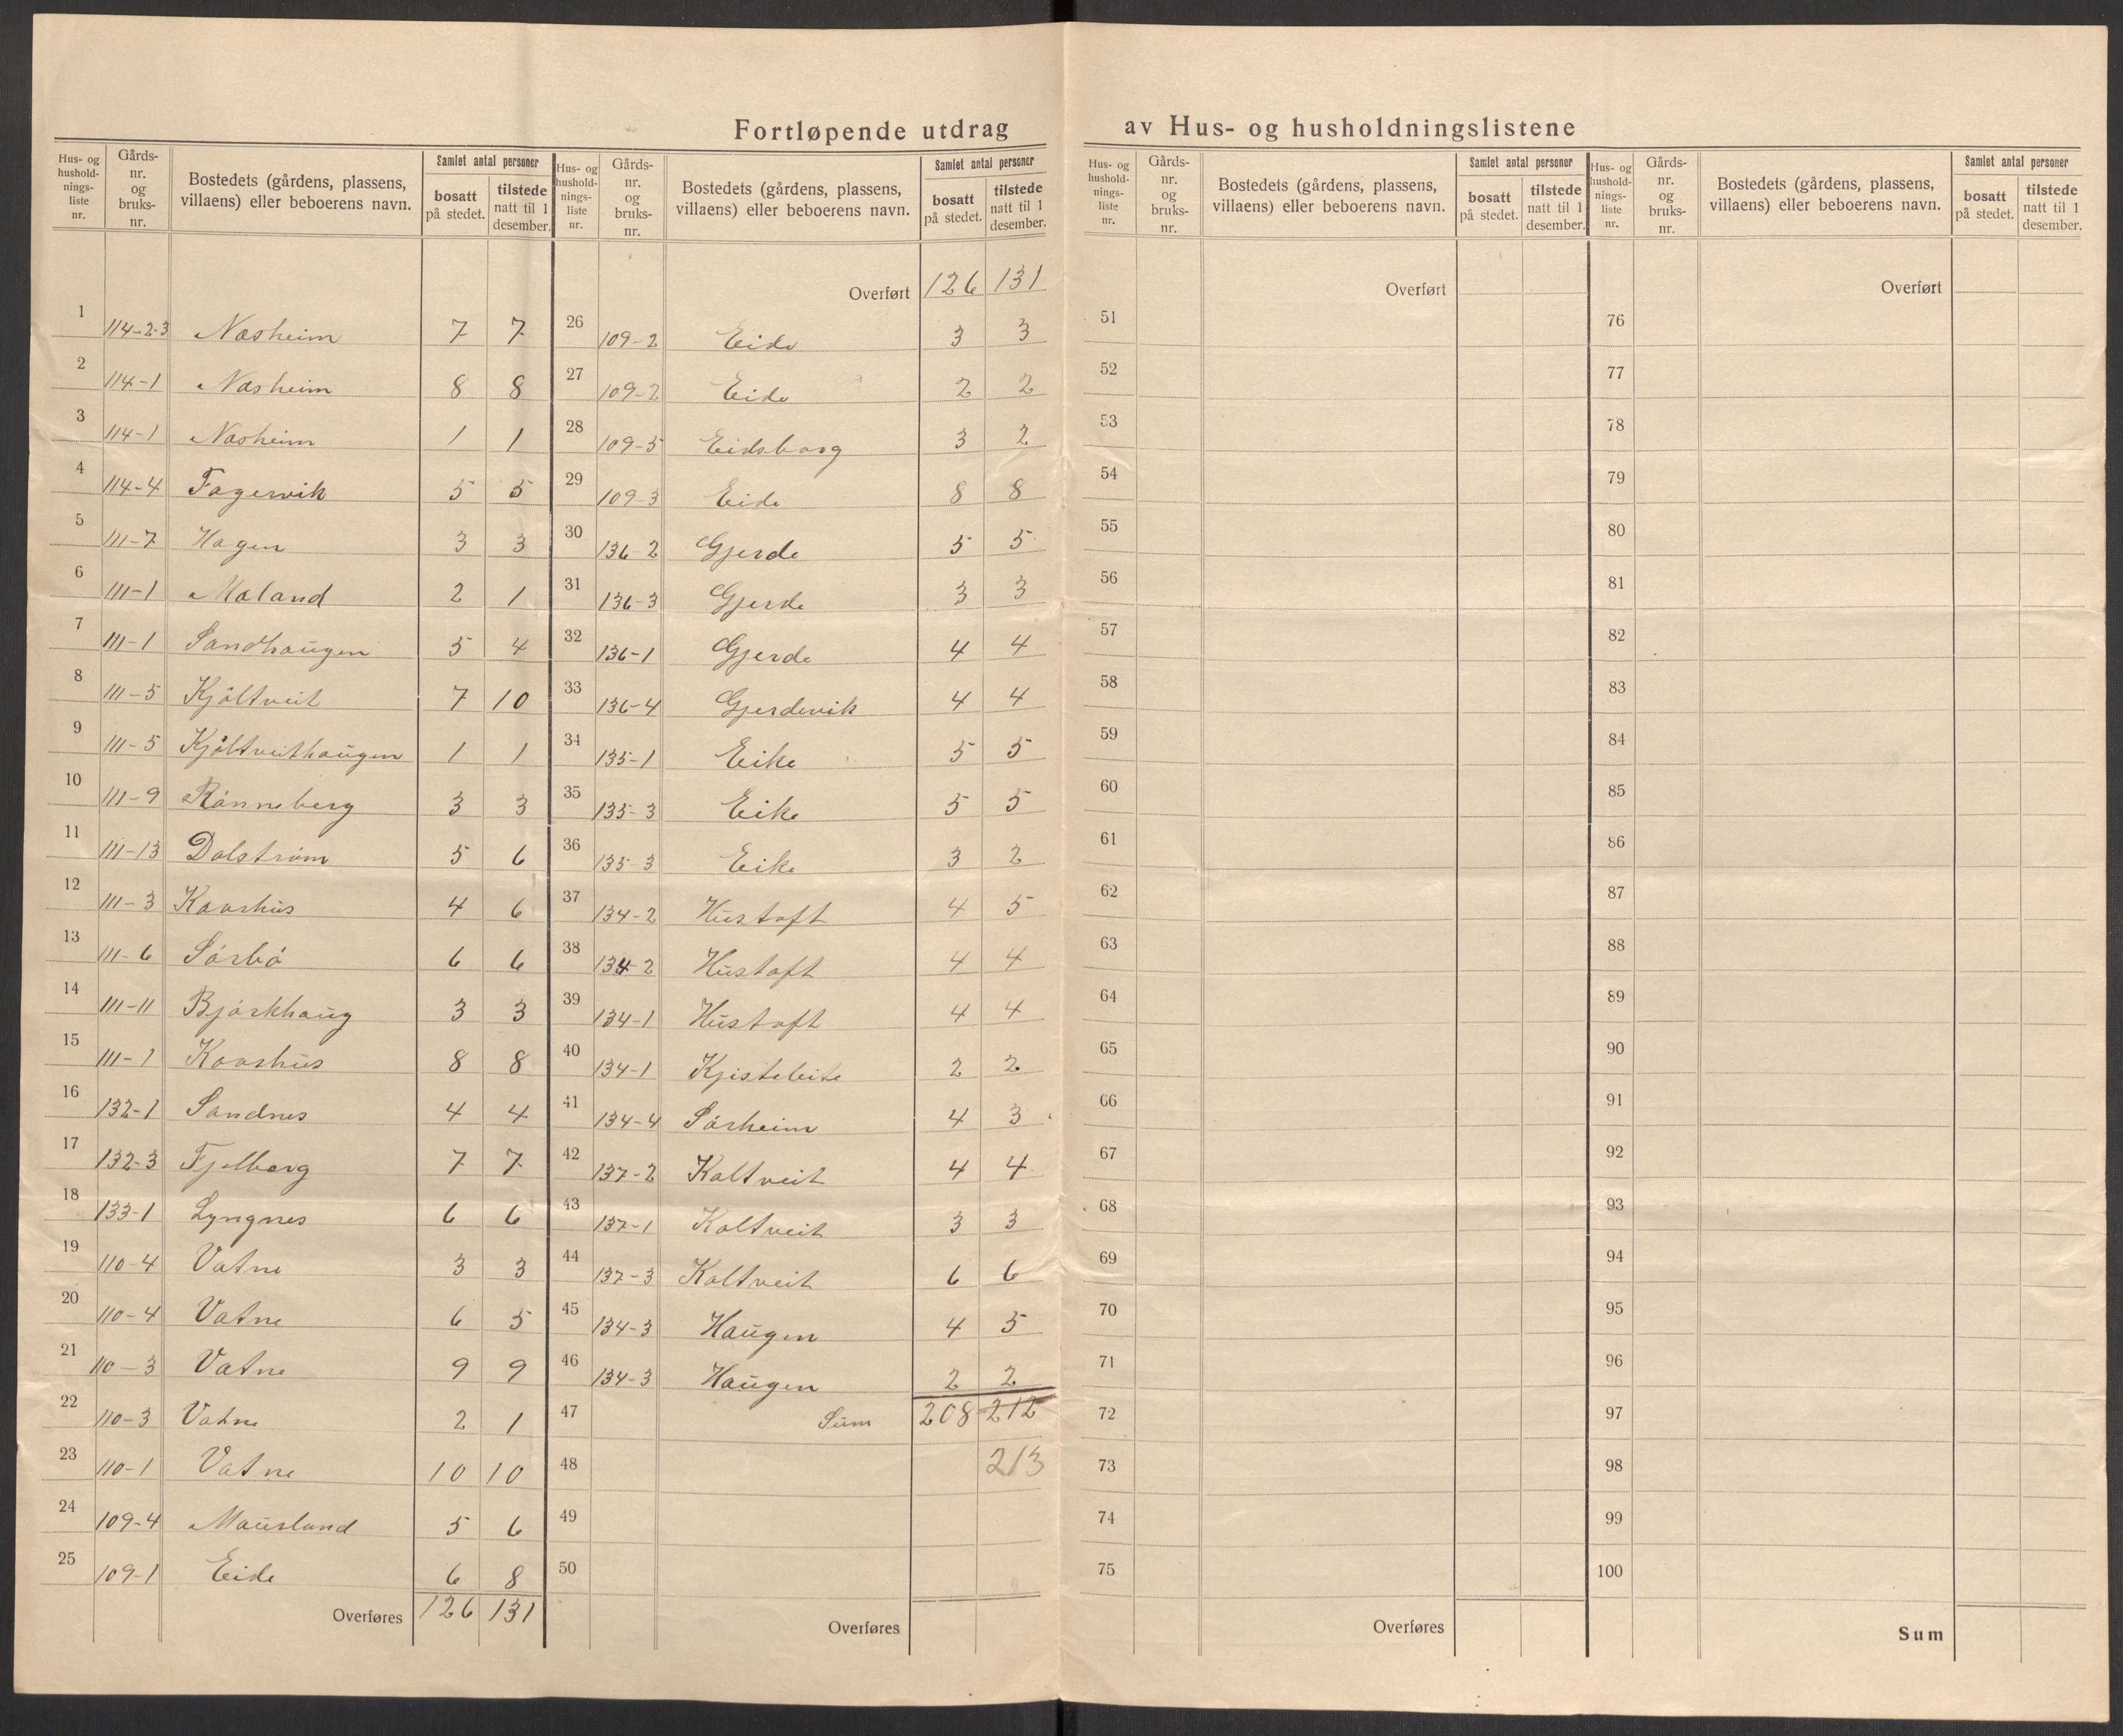 Fortløpende utdrag av Hus- og husholdningslistene
Hus- og husholdningsliste nr. | Gårdsnr. og bruksnr. | Bostedets (gårdens, plassens, villaens) eller beboerens navn. | Samlet antal personer bosatt på stedet. | tilstede natt til 1 desember.
1 114-2-3 Næsheim 7 7
2 114-1 Næsheim 8 8
3 114-1 Næsheim 1 1
4 114-4 Fagervik 5 5
5 111-7 Hagen 3 3
6 111-1 Mæland 2 1
7 111-1 Sandhaugen 5 4
8 111-5 Kjöltveit 7 10
9 111-5 Kjöltveithaugen 1 1
10 111-9 Rönneberg 3 3
11 111-13 Dalström 5 6
12 111-3 Kavshus 4 6
13 111-6 Sörbö 6 6
14 111-11 Björkhaug 3 3
15 111-1 Kovshus 8 8
16 132-1 Sandnes 4 4
17 132-3 Fjelborg 7 7
18 133-1 Lyngnes 6 6
19 110-4 Vatne 3 3
20 110-4 Vatne 6 5
21 110-3 Vatne 9 9
22 110-3 Vatne 2 1
23 110-1 Vatne 10 10
24 109-4 Mausland 5 6
25 109-1 Eide 6 8
Overføres 126 131
Hus- og husholdningsliste nr. | Gårdsnr. og bruksnr. | Bostedets (gårdens, plassens, villaens) eller beboerens navn. | Samlet antal personer bosatt på stedet. | tilstede natt til 1 desember.
Overført 126 131
26 109-2 Eide 3 3
27 109-2 Eide 2 2
28 109-5 Eidsborg 3 2
29 109-3 Eide 8 8
30 136-2 Gjerde 5 5
31 136-3 Gjerde 3 3
32 136-1 Gjerde 4 4
33 136-4 Gjerdevik 4 4
34 135-1 Eike 5 5
35 135-3 Eike 5 5
36 135-3 Eike 3 2
37 134-2 Hustoft 4 5
38 134-2 Hustoft 4 4
39 134-1 Hustoft 4 4
40 134-1 Kjisteleite 2 2
41 134-4 Sörheim 4 3
42 137-2 Koltveit 4 4
43 137-1 Koltveit 3 3
44 137-3 Koltveit 6 6
45 134-3 Haugen 4 5
46 134-3 Haugen 2 2
47 Sum 208 212
48 213
49
50
Overføres
Hus- og husholdningsliste nr. | Gårdsnr. og bruksnr. | Bostedets (gårdens, plassens, villaens) eller beboerens navn. | Samlet antal personer bosatt på stedet. | tilstede natt til 1 desember.
Overført
51
52
53
54
55
56
57
58
59
60
61
62
63
64
65
66
67
68
69
70
71
72
73
74
75
Overføres
Hus- og husholdningsliste nr. | Gårdsnr. og bruksnr. | Bostedets (gårdens, plassens, villaens) eller beboerens navn. | Samlet antal personer bosatt på stedet. | tilstede natt til 1 desember.
Overført
76
77
78
79
80
81
82
83
84
85
86
87
88
89
90
91
92
93
94
95
96
97
98
99
100
Sum